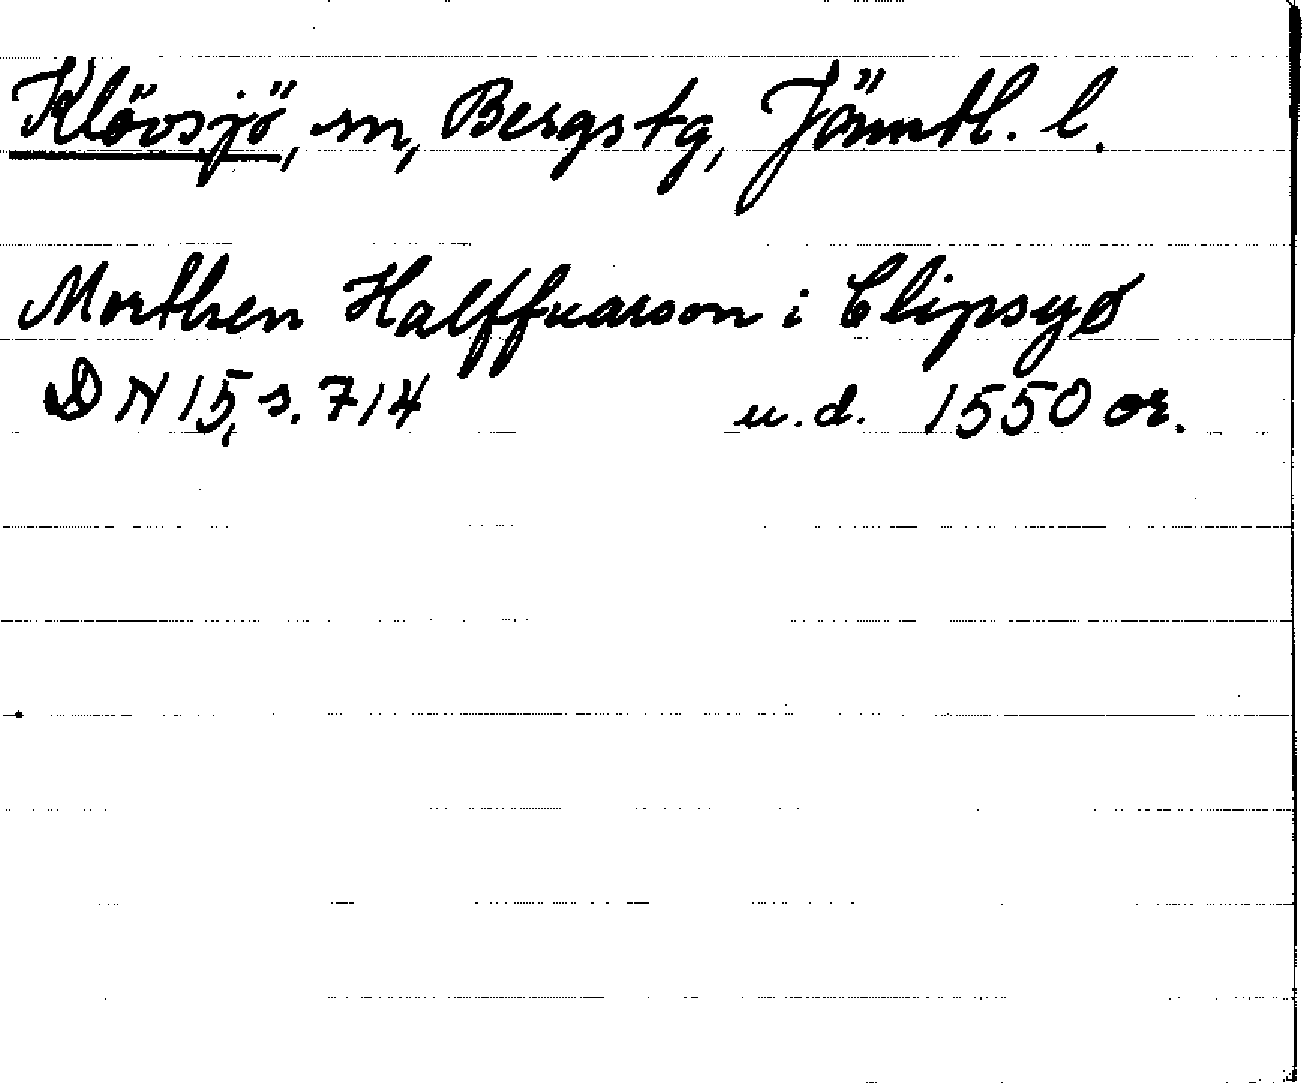 Klövsjö, sn, Bergs tg, Jämtl. l.
Morthen Halffuarson i Clipsyø
DN 15, s. 714 u.d. 1550 or.